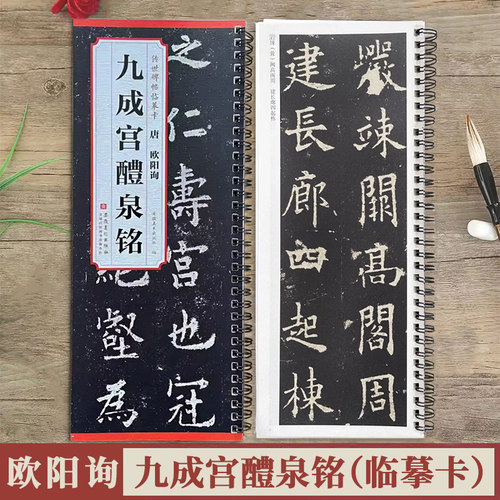 传世碑帖临摹卡
唐 欧阳询
九成宫醴泉铭
之仁壽宮也冠
絕壑為
巖竦闕高閣周
建長廊四起棟
欧阳询
九成宫醴泉铭(临摹卡)